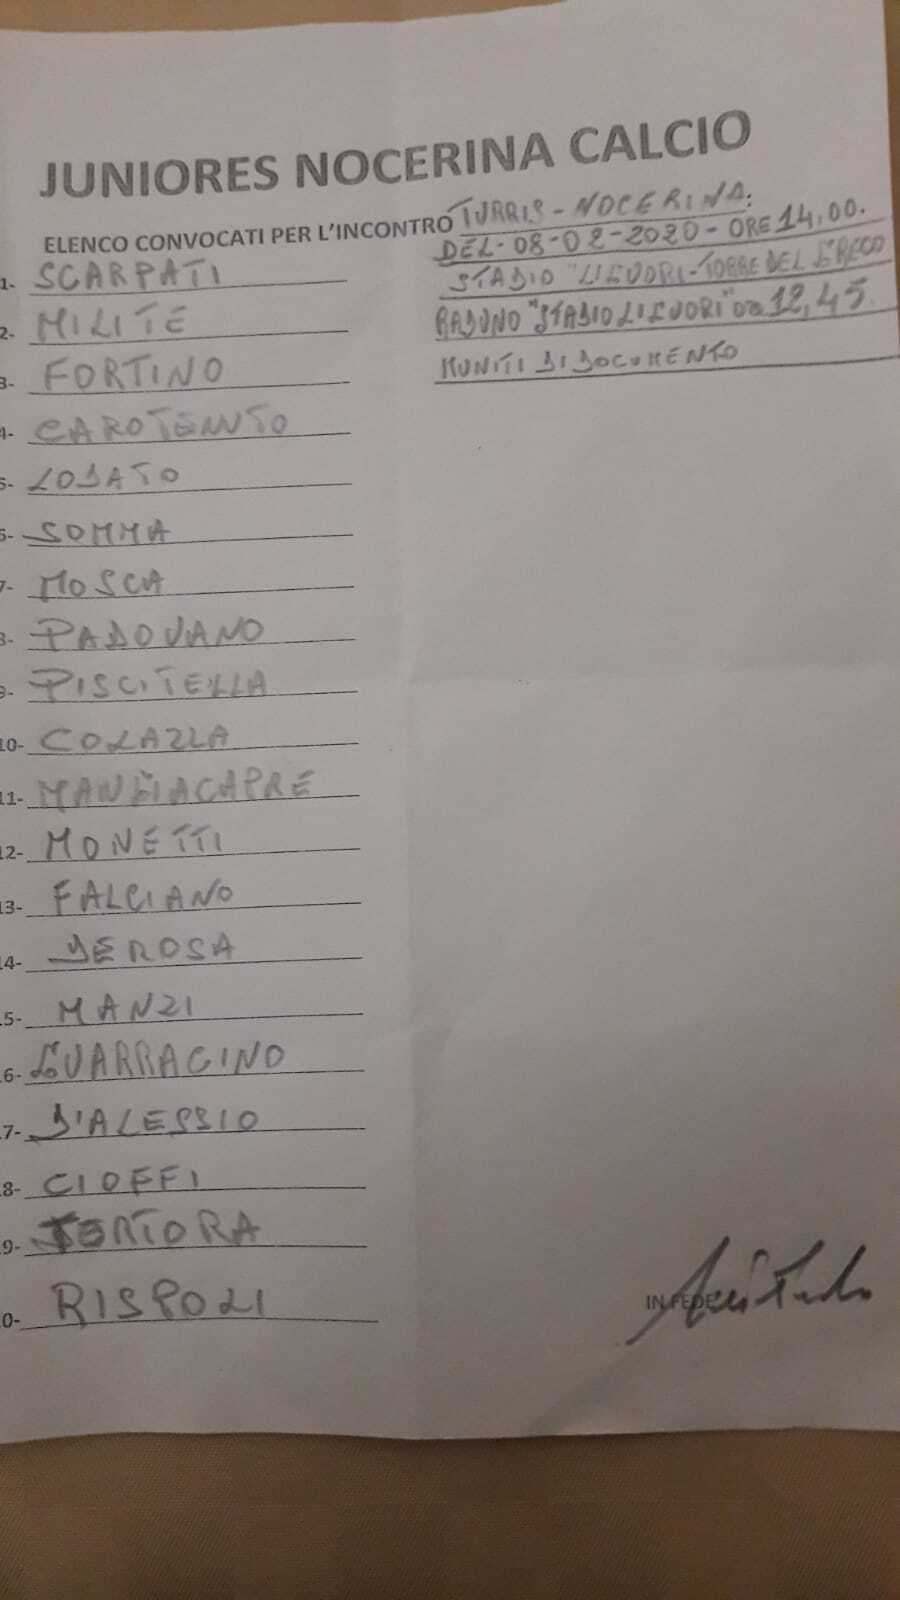 JUNIORES NOCERINA CALCIO
ELENCO CONVOCATI PER L'INCONTRO TURRIS - NOCERINA:
DEL - 08-02-2020 - ORE 14,00.
STADIO "LIGUORI - TORRE DEL GRECO
RADUNO "STADIO LIGUORI" ore 12,45.
MUNITI DI DOCUMENTO
1- SCARPATI
2- MILITE
3- FORTINO
4- CAROTENNTO
5- LODATO
6- SOMMA
7- MOSCA
8- PADOVANO
9- PISCITELLA
10- COLAZZA
11- MANGIACAPRE
12- MONETTI
13- FALCIANO
14- DEROSA
5- MANZI
6- GUARRACINO
7- D'ALESSIO
8- CIOFFI
9- TORTORA
0- RISPOLI
IN FEDE